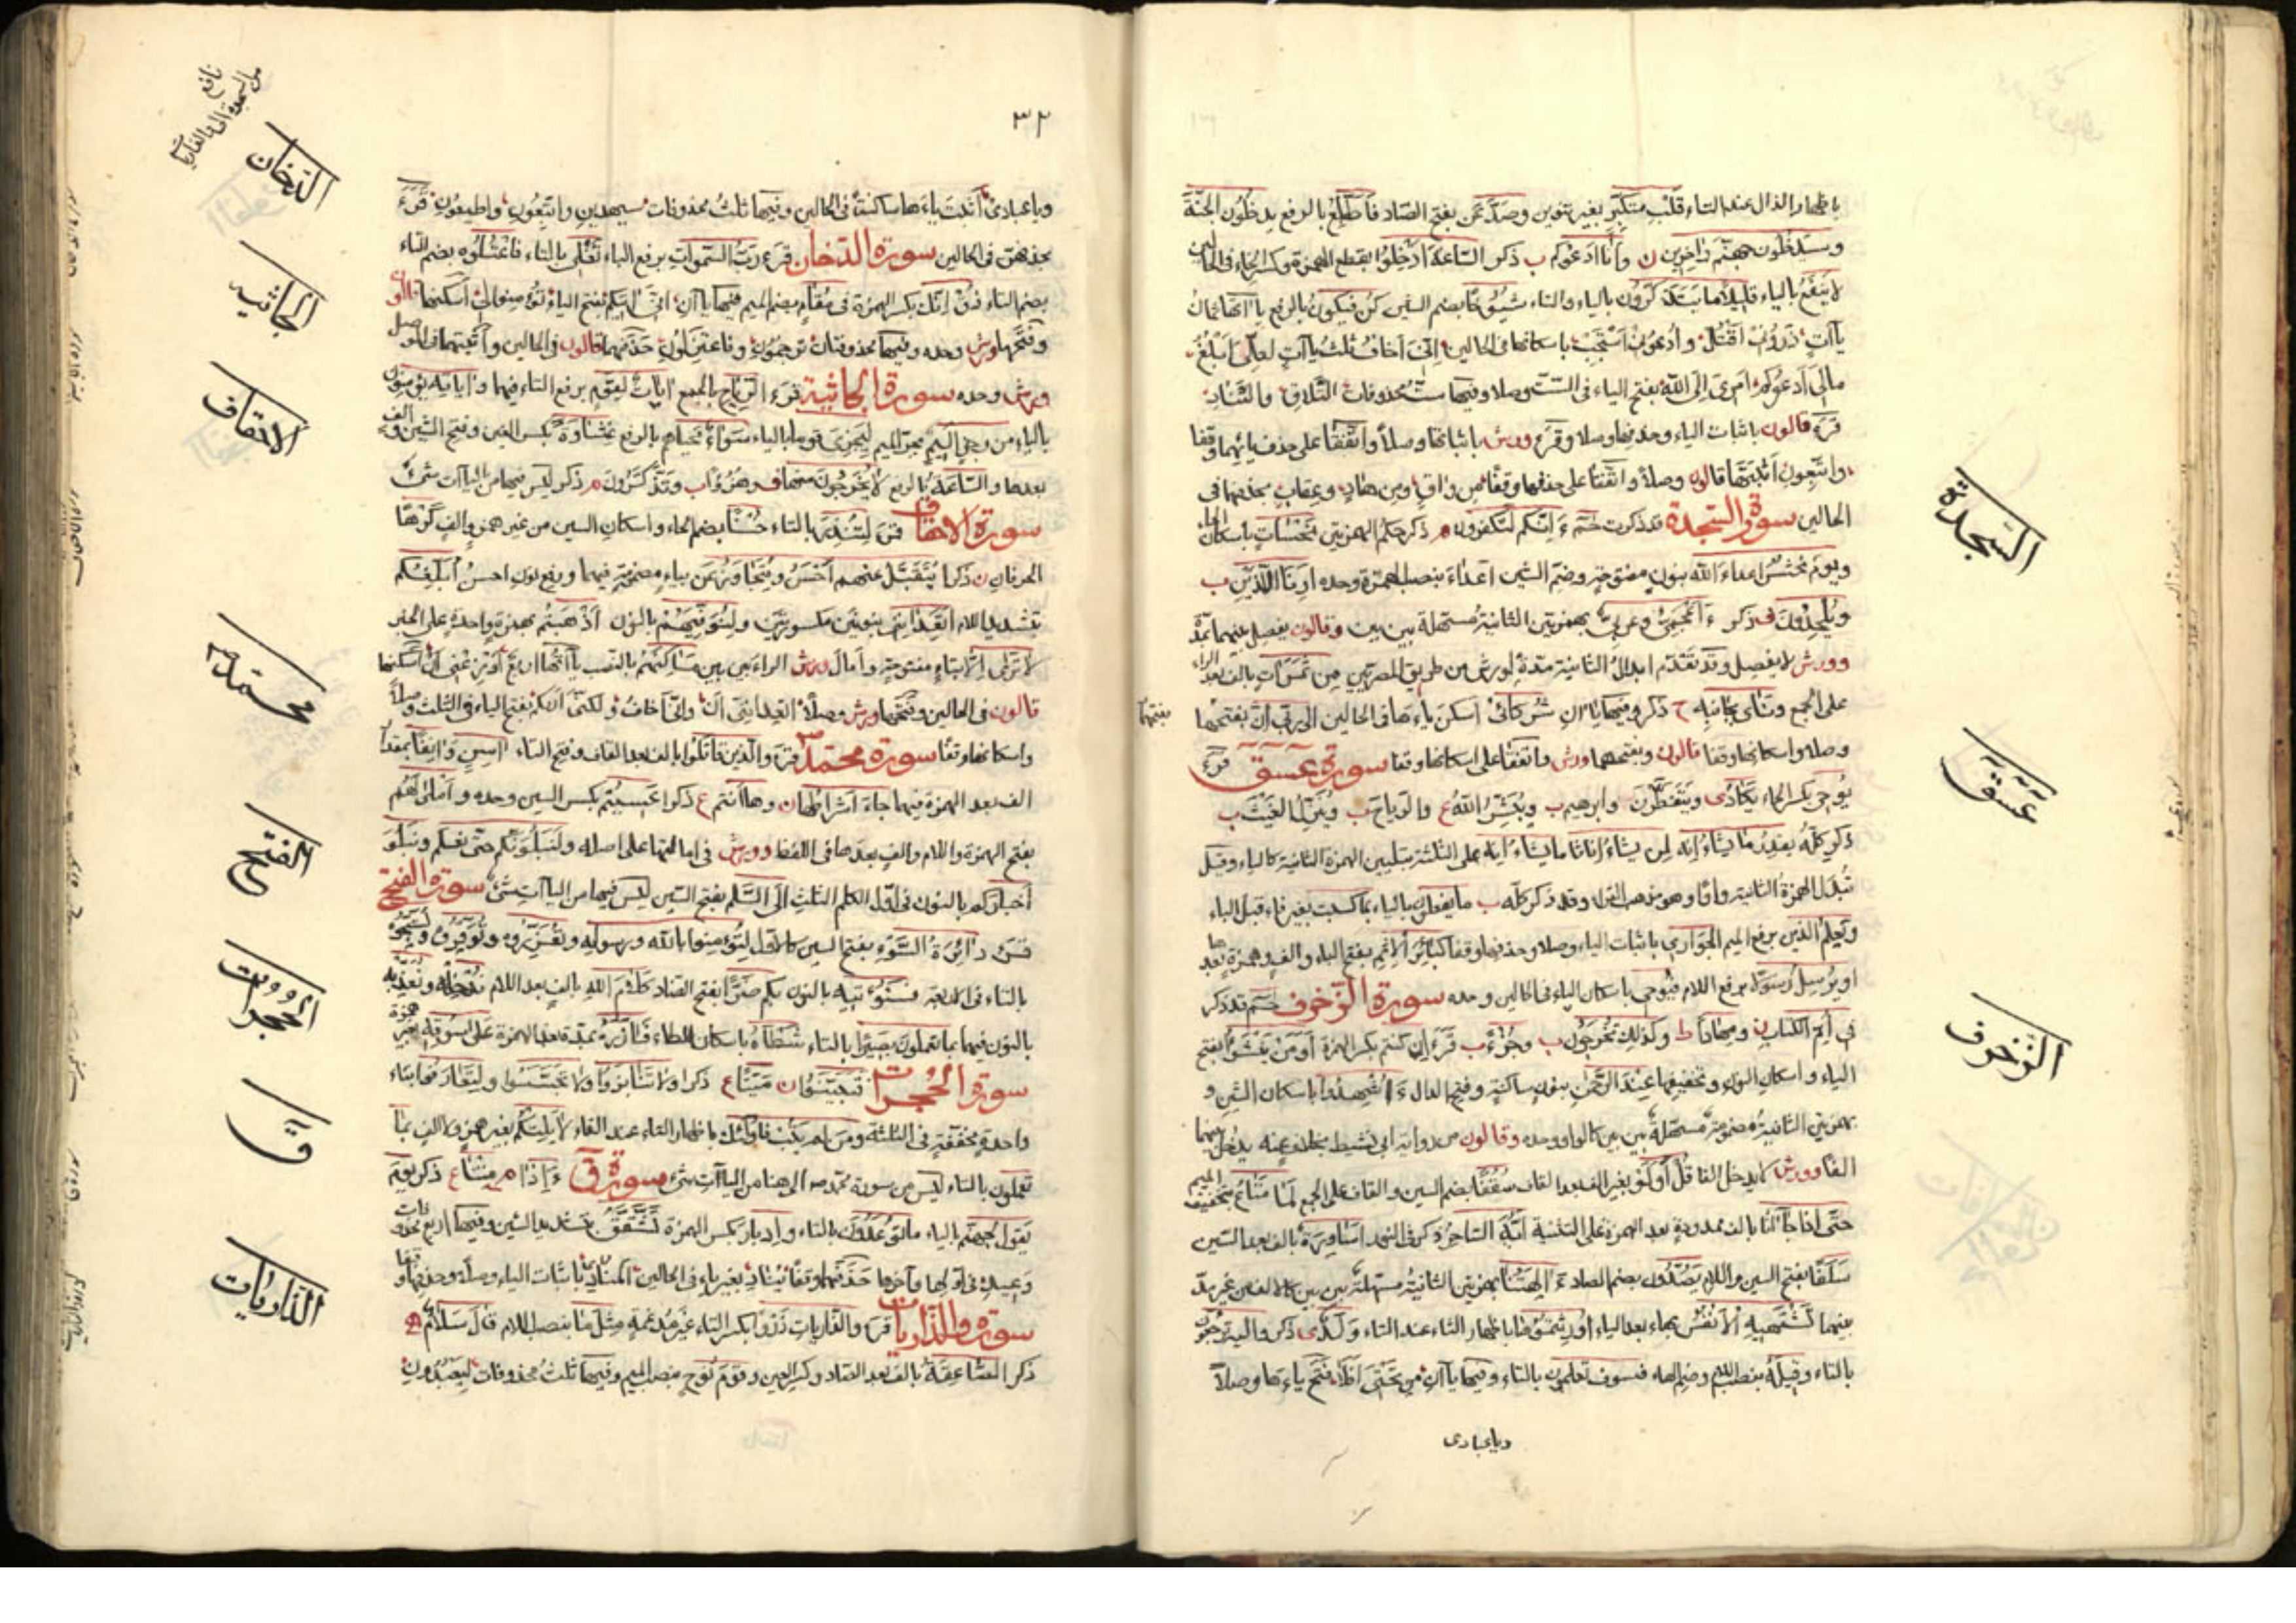 باظهار الذال عند التاء قلب متكبر بغير تنوين وصد عن بفتح الصاد فاطلع بالرفع يدخلون الجنة
وسيدخلون جهنم داخرين ن وانا ادعوكم ب ذكر الساعة ادخلوا بقطع الهمزة وكسر الخاء فى الحالين
لا ينفع بالياء قليلا ما يتذكرون بالياء والتاء شيوخا بضم الشين كن فيكون بالرفع يا اتها ثمان
يا آت ذرونى اقتل وادعونى استجب باسكانها فى الحالين انى اخاف ثلث يا آت لعلى ابلغ
مالى ادعوكم امرى الى الله بفتح الياء فى الست وصلا وفيها ست محذوفات التلاق والتناد
قرء قالون باثبات الياء وحذفها وصلا وقرء ورش باثباتها وصلا واتفقا على حذف يائهما وقفا
واتبعون اثبتها قالون وصلا واتفقا على حذفها وقفا من واق ومن هاد وعقاب بحذفها فى
الحالين سورة السجدة قد ذكرت حم ء ائنكم لتكفرون م ذكر حكم الهمزتين نحسات باسكان الحاء
ويوم نحشر اعداء الله بنون مفتوحة وضم الشين اعداء بنصب الهمزة وحده ارنا اللذين ب
ويلحدون ف ذكر ء اعجمى وعربى بهمزتين الثانية مسهلة بين بين وقالون يفصل بينهما بمدة
وورش لا يفصل وقد تقدم ابدال الثانية مدة لورش من طريق المصريين من ثمرات بالف بعد الراء
على الجمع ونئاى بجانبه ح ذكر وفيها يا ان شركائى اسكن ياءها فى الحالين الى ربى ان بفتحها
بفتحها
وصلا واسكانها وقفا قالون وبفتحها ورش واتفقا على اسكانها وقفا سورة عسق قرء
يوحى بكسر الحاء يكادى ويتفطرن وابرهيم ب ويبشر الله ع والرياح ب وينزل الغيث ب
ذكر كله بقدر ما يشاء انه لمن يشاء اناثا ما يشاء انه على الثلثة بتليين الهمزة الثانية كالياء وقيل
تبدل الهمزة الثانية واوا وهو مذهب القراء وقد ذكر كله ب ما يفعلون بالياء بما كسبت بغير فاء قبل الباء
ويعلم الذين برفع الميم الجوارى باثبات الياء وصلا وحذفها وقفا كبائر الاثم بفتح الباء والف وهمزة بعدها
او يرسل رسولا برفع اللام فيوحى باسكان الياء فى الحالين وحده سورة الزخرف حم قد ذكر
فى ام الكتاب ن ومهادا ط وكذلك تخرجون ب وجزءا ب قرء ان كنتم بكسر الهمزة اومن ينشؤا بفتح
الياء واسكان النون وتخفيفها عند الرحمن بنون ساكنة وفتح الدال ء اشهدوا باسكان الشين و
بهمزتين الثانية مضمومة مسهلة بين بين كالواو وحده وقالون من رواية ابى نشيط بخلاف عنه يدخل بينهما
الفا وورش لا يدخل الفا قل اولو بغير الف بعد القاف سقفا بضم السين والقاف على الجمع لما متاع بتخفيف الميم
حتى اذا جاآنا بالف ممدودة بعد الهمزة على التثنية ايه الساحر ذكر فى النور اساورة بالف بعد السين
سلفا بفتح السين واللام يصدون بضم الصاد ء الهتنا بهمزتين الثانية مسهلة بين بين كالالف من غير مد
بينهما تشتهيه الانفس بهاء بعد الياء اورثتموها باظهار الثاء عند التاء ولدى ذكر واليه ترجعون
بالتاء وقيله بنصب اللام وضم الهاء فسوف تعلمون بالتاء وفيها يا آن من تحتى افلا فتح ياءها وصلا
ويا عبادى
السجدة
عسق
الزخرف
٣٢
نافع
من السجدة الى والذاريات
ويا عبادى اثبت ياءها ساكنة فى الحالين وفيها ثلث محذوفات سيهدين واتبعون واطيعون قرء
بحذفهن فى الحالين سورة الدخان قرء رب السموات برفع الباء تغلى بالتاء فاعتلوه بضم التاء
بضم التاء ذق انك بكسر الهمزة فى مقام بضم الميم فيها يا آن انى اتيكم بفتح الياء تؤمنوا لى اسكنها قالون
وفتحها ورش وحده وفيها محذوفتان ترجمون وفاعتزلون حذفهما قالون فى الحالين واثبتهما فى الوصل
ورش وحده سورة الجاثية قرء الرياح بالجمع ايات لقوم برفع التاء فيهما واياته يؤمنون
بالياء من رجز اليم بجر الميم ليجزى قوما بالياء سواء محياهم بالرفع غشاوة بكسر الغين وفتح الشين والف
بعدها والساعة بالرفع لا يخرجون منها ف وهزؤا ب وتذكرون م ذكر ليس فيها من اليا آت شئ
سورة الاحقاف قرء لتنذر بالتاء حسنا بضم الحاء واسكان السين من غير همز والف كرها
الحرفان ن ذكرا يتقبل عنهم احسن ويتجاوز عن بياء مضمومة فيهما ورفع نون احسن ابلغكم
بتشديد اللام اتعداننى بنونين مكسورتين ولنوفيهم بالنون اذهبتم بهمزة واحدة على الخبر
لا ترى الا بتاء مفتوحة وامال ورش الراء بين بين مساكنهم بالنصب يا آتها اربع اوزعنى ان اسكنها
قالون فى الحالين وفتحها ورش وصلا اتعداننى ان وانى اخاف ولكنى اريكم بفتح الياء فى الثلث وصلا
واسكانها وقفا سورة محمد قرء والذين قاتلوا بالف بعد القاف وفتح التاء اسن وانفا بمقدار
الف بعد الهمزة فيهما جاء اشراطها ن وها انتم ع ذكرا عسيتم بكسر السين وحده واملى لهم
بفتح الهمزة واللام والف بعدها فى اللفظ وورش فى امالتها على اصله ولنبلونكم حتى نعلم ونبلو
اخباركم بالنون فى اول الكلم الثلث الى السلم بفتح السين ليس فيها من اليا آت شئ سورة الفتح
قرء دائرة السوء بفتح السين كالاول لتؤمنوا بالله ورسوله وتعزروه وتوقروه وتسبحوه
بالتاء فى الاربعة فسنؤتيه بالنون بكم ضرا بفتح الضاد كلام الله بالف بعد اللام ندخله ونعذبه
بالنون فيهما بما تعملون بصيرا بالتاء شطأه باسكان الطاء فآزره بمدة بعد الهمزة على سوقه بغير همزة
سورة الحجرات فتبينوا ن ميتا ع ذكرا ولا تنابزوا ولا تجسسوا ولتعارفوا بتاء
واحدة مخففة فى الثلثة ومن لم يتب فاولئك باظهار التاء عند الفاء لا يلتكم بغير همز ولا الف بما
تعملون بالتاء ليس من سورة محمد ص الى هنا من اليا آت شئ سورة ق ء اذا م متنا ع ذكر يوم
يقول لجهنم بالياء ما توعدون بالتاء وادبار بكسر الهمزة تشقق بتشديد الشين وفيها اربع محذوفات
وعيد فى اولها وآخرها حذفهما وقفا يناد بغير ياء فى الحالين المناد باثبات الياء وصلا وحذفها وقفا
سورة والذاريات قرء والذاريات ذروا بكسر التاء غير مدغمة مثل ما بنصب اللام قال سلام
ذكر الصاعقة بالف بعد الصاد وكسر العين وقوم نوح بنصب الميم وفيها ثلث محذوفات ليعبدون
الدخان
الجاثيه
الاحقاف
محمد
الفتح
الحجرات
ق
الذاريات